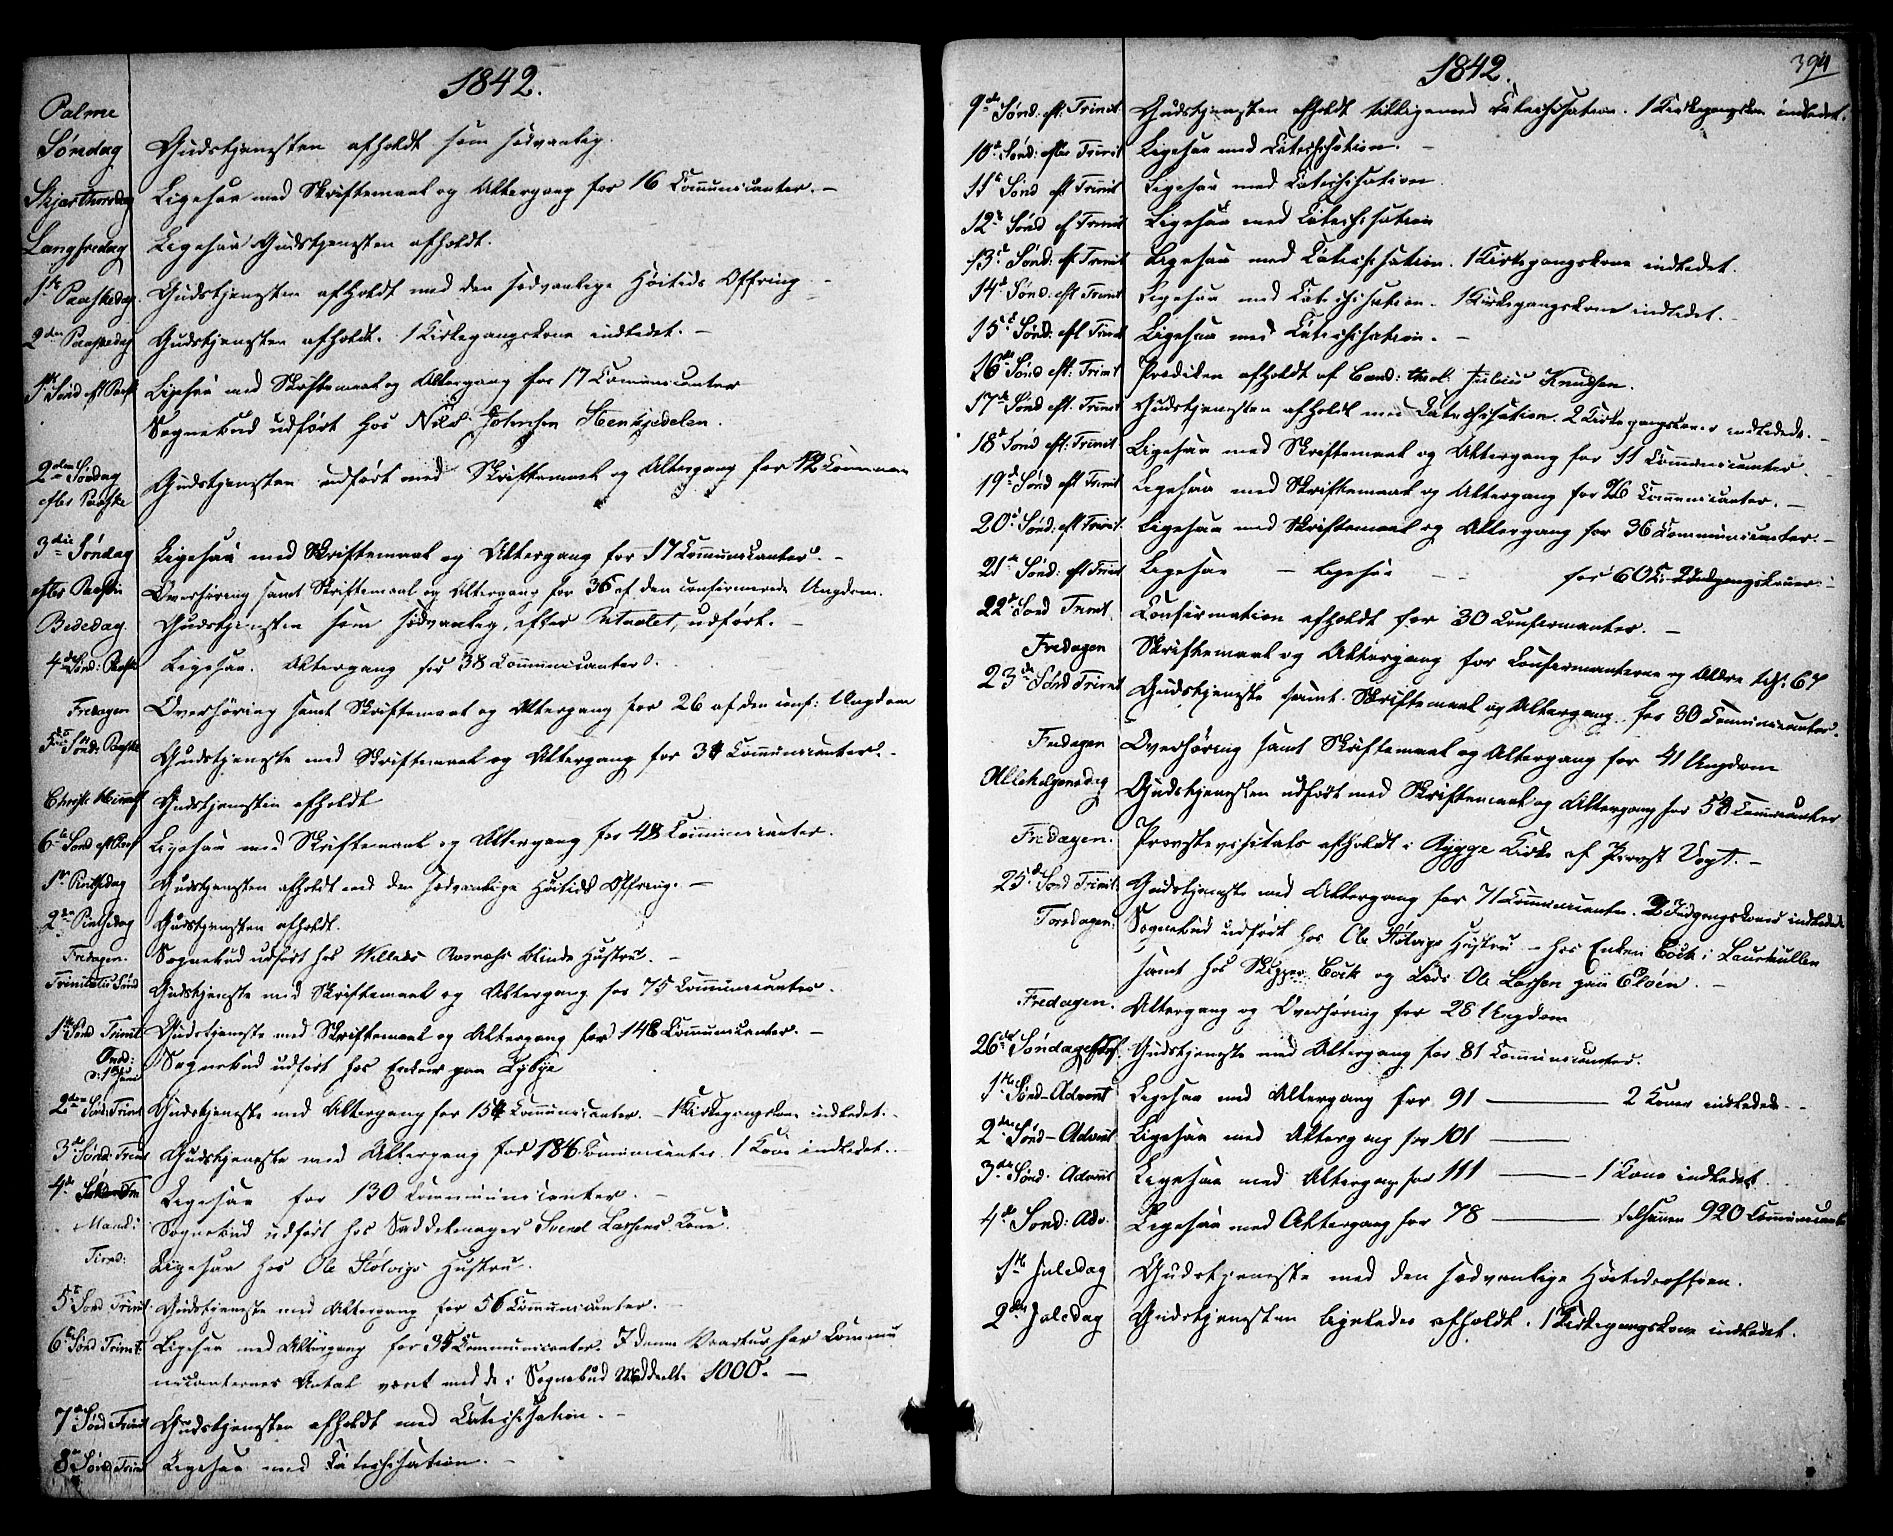 1842.
Palme
Søndag Gudstjenesten afholdt som sædvanlig.
Skjærthorsdag Ligesaa med Skriftemaal og Altergang for 16 Communicanter. –
Langfredag Ligesaa Gudstjenesten afholdt.
1ste Paaskedag. Gudstjenesten afholdt med den sædvanlige Høitids Offring. –
2den Paaskedag Gudstjenesten afholdt. 1 Kirkegangskone indledet. –
1ste Sønd eft Paask Ligesaa med Skriftemaal og Altergang for 17 Communicanter
Sognebud udført hos Nils Johnsen
2den Søndag Gudstjenesten udført med Skriftemaal og Altergang for 12 Commun
efter Paaske
3die Søndag Ligesaa med Skriftemaal og Altergang for 17 Communicanter. –
efter Paaske Overhøring samt Skriftemaal og Altergang for 36 af den confirmerede Ungdom.
Bededag. Gudstjenesten som sædvanlig, efter Ritualet, udført. –
4de Sønd: Paaske Ligesaa. Altergang for 38 Communicanter.
Fredagen Overhøring samt Skriftemaal og Altergang for 26 af den conf: Ungdom
5te Sønd: Paaske Gudstjeneste med Skriftemaal og Altergang for 34 Communicanter. –
Christi Himmelf Gudstjenesten afholdt
6te Sønd eft Paas Ligesaa med Skriftemaal og Altergang for 48 Communicanter.
1ste Pintsedag Gudstjenesten afholdt med den sædvanlige Høitids Offring. –
2den Pintsedag Gudstjenesten afholdt.
Fredagen. Sognebud udført hos Willads blinde Hustru. –
Trinitatis Sønd Gudstjeneste med Skriftemaal og Altergang for 75 Communicanter.
1ste Sønd Trinit Gudstjeneste med Skriftemaal og Altergang for 148 Communicanter. –
Onsd: Sognebud udført hos Enken paa Rybye
d: 1 Juni
2den Sønd: Trinit Gudstjeneste med Altergang for 154 Communicanter. – 1 Kirkegangskone indledet. –
3de Sønd: Trinit Gudstjeneste med Altergang for 186 Communicanter. 1 Kone indledet. –
4de Sønd Tri Ligesaa for 130 Communicanter. –
Mand: Sognebud udført hos Saddelmager Svend Larsens Kone.
Tirsd: Ligesaa hos Ole Støtvigs Hustru.
5te Sønd Trinit. Gudstjeneste med Altergang for 56 Communicanter. –
6te Sønd Trinit. Ligesaa med Altergang for 34 Communicanter. I denne Kvartur har Commu
nicanternes Antal været med de i Sognebud Meddelte 1000. –
7de Sønd Trinit Gudstjenesten afholdt med Catechisation. –
8de Sønd Trinit Ligesaa med Catechisation. –
1842.
394
9de Sønd: eft: Trinit Gudstjenesten afholdt tilligemed Catechisation. 1 Kirkegangskone indledet.
10de Sønd: efter Trinit Ligesaa med Catechisation. –
11te Sønd eft Trinit Ligesaa med Catechisation.
12te Sønd ef Trinit Ligesaa med Catechisation
13de Sønd: ef Trinit Ligesaa med Catechisation. 1 Kirkegangskone indledet.
14de Sønd: eft Trinit Ligesaa med Catechisation. 1 Kirkegangskone indledet. –
15de Sønd: eft Trinit Ligesaa med Catechisation. –
16de Sønd eft: Trinit Prædiken afholdt af Cand: theol: Julius Knudsen.
17de Sønd eft. Trinit Gudstjenesten afholdt med Catechisation. 2 Kirkegangskoner indledede. –
18de Sønd eft: Trinit. Ligesaa med Skriftemaal og Altergang for 11 Communicanter. –
19de Sønd eft Trinit Ligesaa med Skriftemaal og Altergang for 26 Communicanter. –
20de Sønd: eft Trinit. Ligesaa med Skriftemaal og Altergang for 36 Communicanter. –
21de Sønd: eft Trinit Ligesaa – ligesaa – – for 60 C: 2 Indgangskoner. –
22de Sønd Trinit. Confirmation afholdt for 30 Confirmanter. –
Fredagen Skriftemaal og Altergang for Confirmanterne og Ældre tils: 67
23de Sønd Trinit Gudstjeneste samt Skriftemaal og Altergang for 30 Communicanter.
Fredagen Overhøring samt Skriftemaal og Altergang for 41 Ungdom
Allehelgensdag Gudstjenesten udført med Skriftemaal og Altergang for 58 Communicanter
Fredagen. Provstevisitats afholdt i Rygge Kirke af Provst Vogt. –
25de Sønd Trinit. Gudstjeneste med Altergang for 71 Communicanter. 2 Indgangskoner indledede
Torsdagen: Sognebud udført hos Ole Støtvigs Hustru – hos Enken Cock i Laurkullen
samt hos Skipper Cock og Lods Ole Larsen paa Eløen. –
Fredagen. Altergang og Overhøring for 28 Ungdom
26de Søndag Gudstjeneste med Altergang for 81 Communicanter.
1ste Sønd – Advent Ligesaa med Altergang for 91 — 2 Koner indledede –
2den Sønd – Advent Ligesaa med Altergang for 101 —
3die Sønd: Advent Ligesaa med Altergang for 111 — 1 Kone indledet.
4de Sønd: Adv. Ligesaa med Altergang for 78 — tilsammen 920 Communicant
1ste Juledag Gudstjeneste med den sædvanlige Høitidsoffren.
2den Juledag Gudstjenesten ligeledes afholdt. 1 Kirkegangskone indledet.